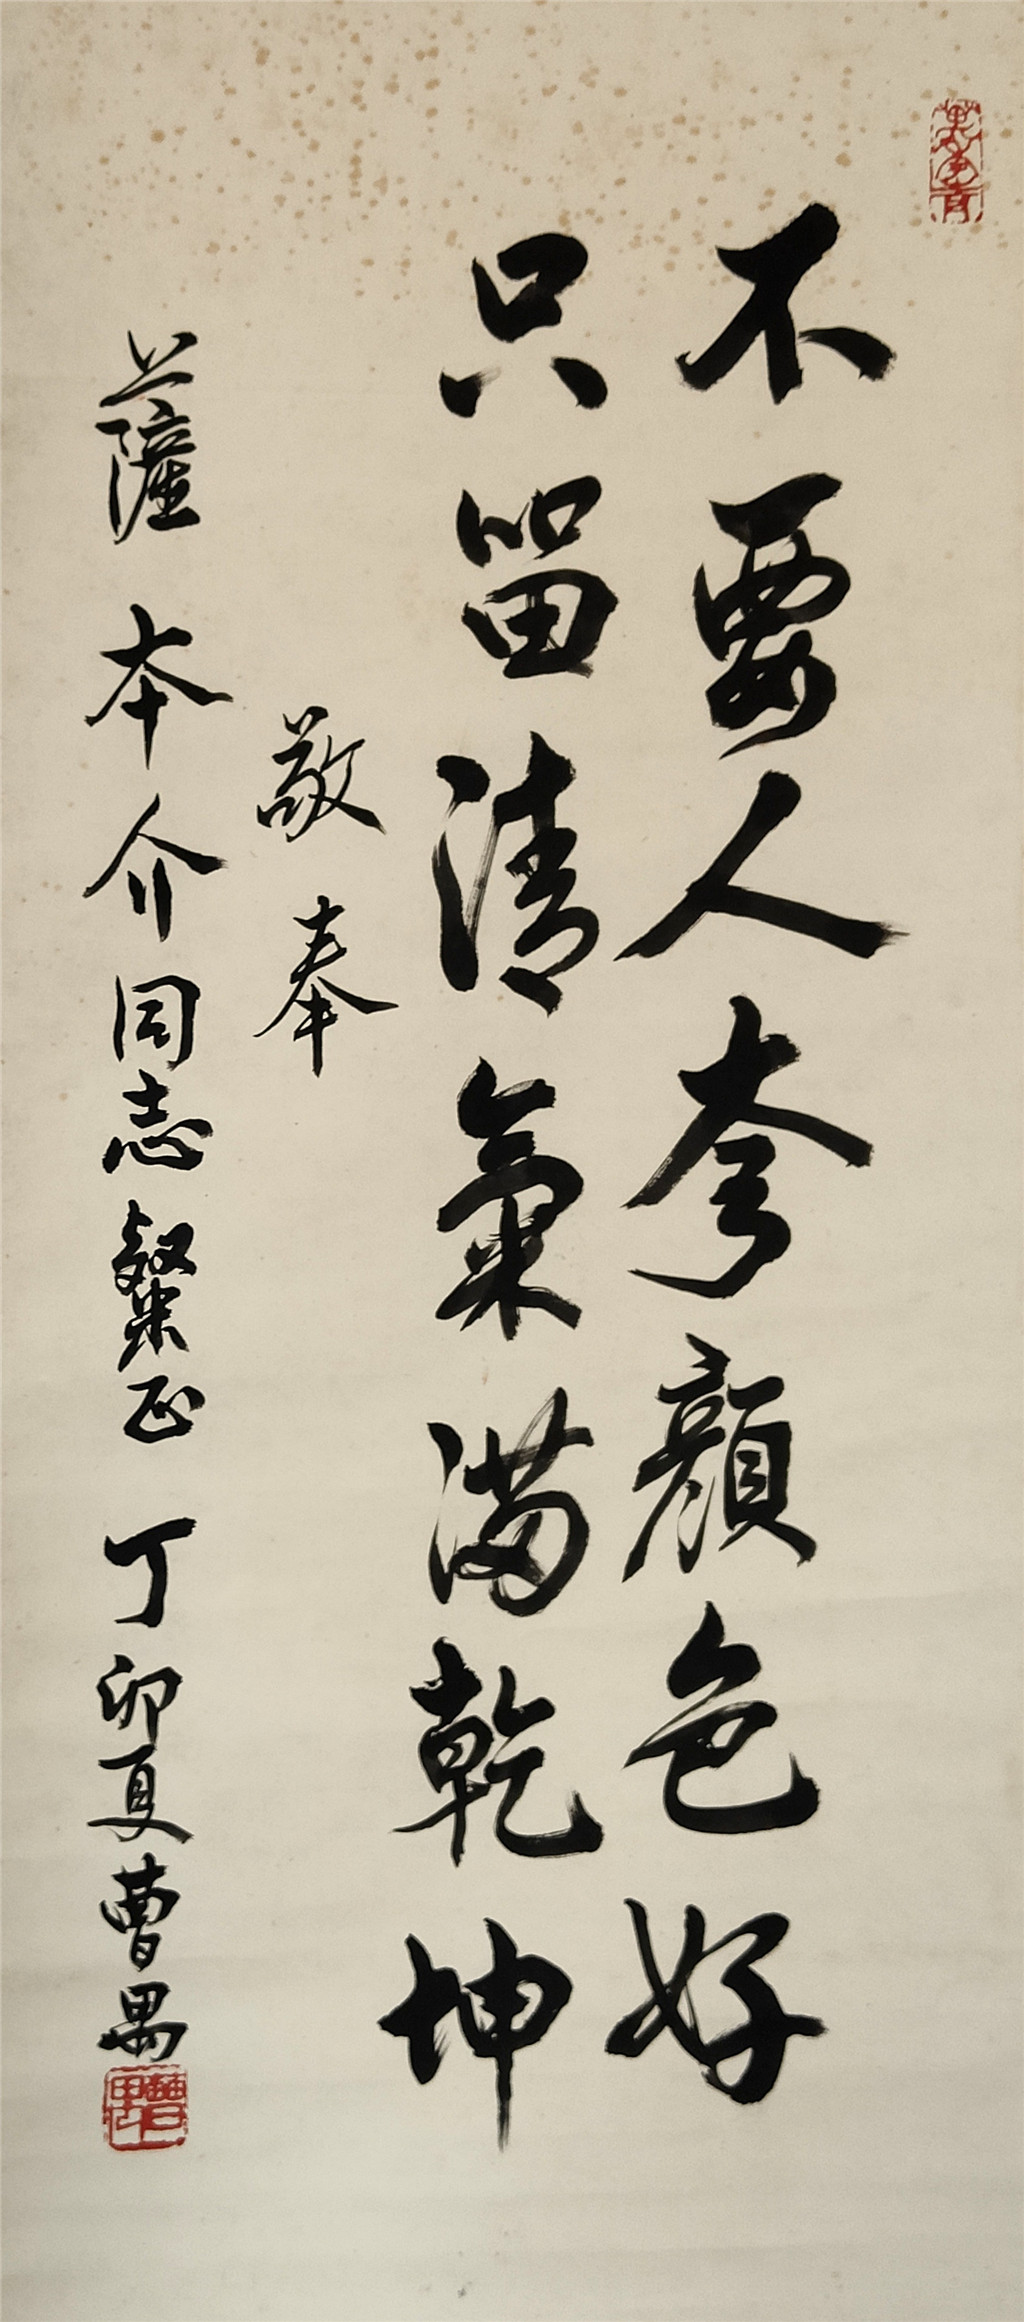 不要人夸顏色好
只留清氣滿乾坤
敬奉
薩本介同志粲正 丁卯夏曹禺
曹禺